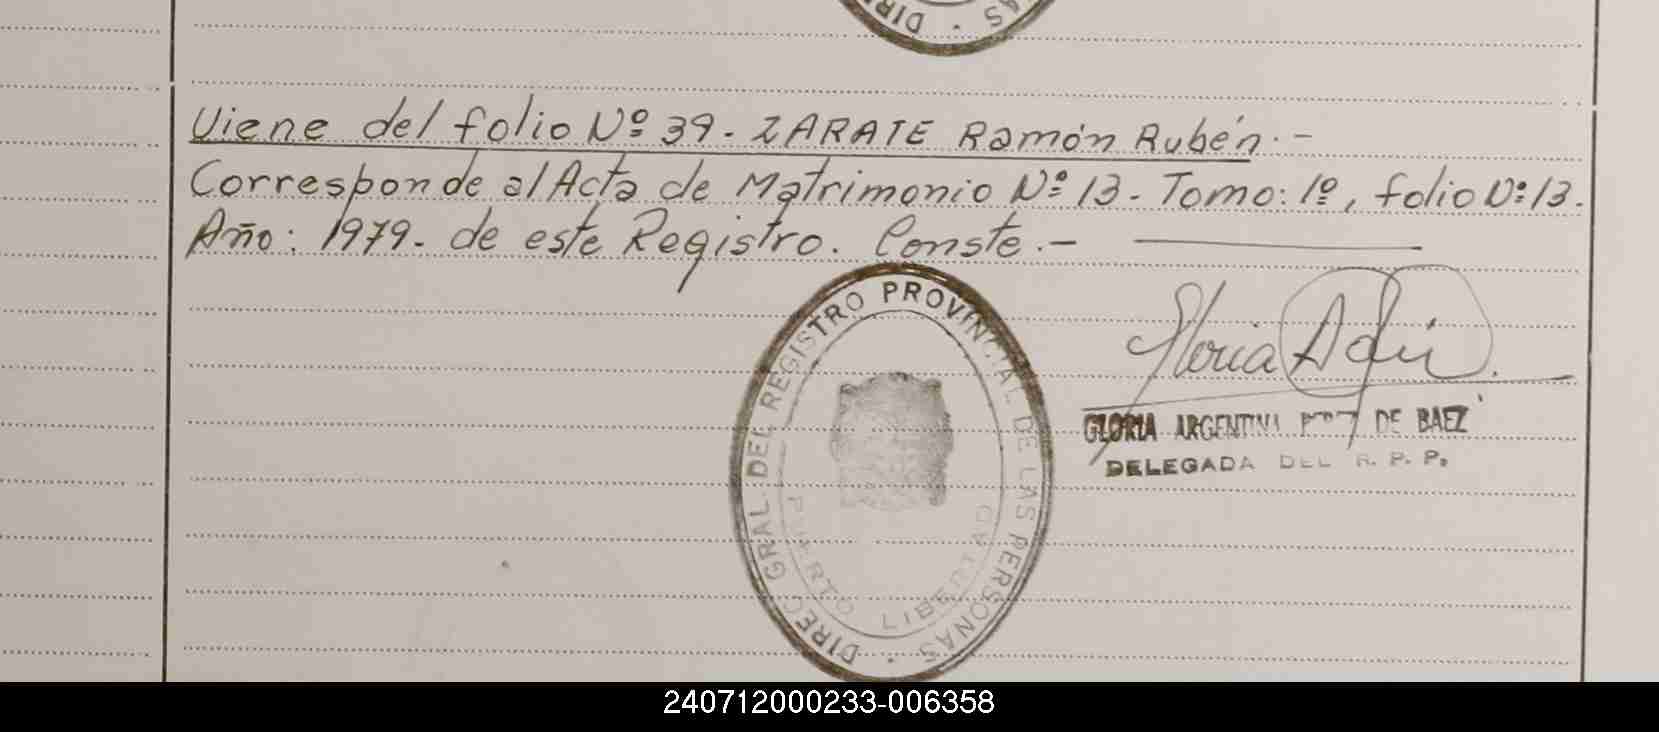 DIRE · NAS
Viene del folio Nº 39 - ZARATE Ramón Rubén. -
Corresponde al Acta de Matrimonio Nº 13 - Tomo: 1º, folio Nº 13.
Año: 1979 - de este Registro. Conste. -
DIREC. GRAL. DEL REGISTRO PROVINCIAL DE LAS PERSONAS ·
PUERTO LIBERTAD
Gloria
GLORIA ARGENTINA DE BAEZ
DELEGADA DEL R. P. P.
240712000233-006358